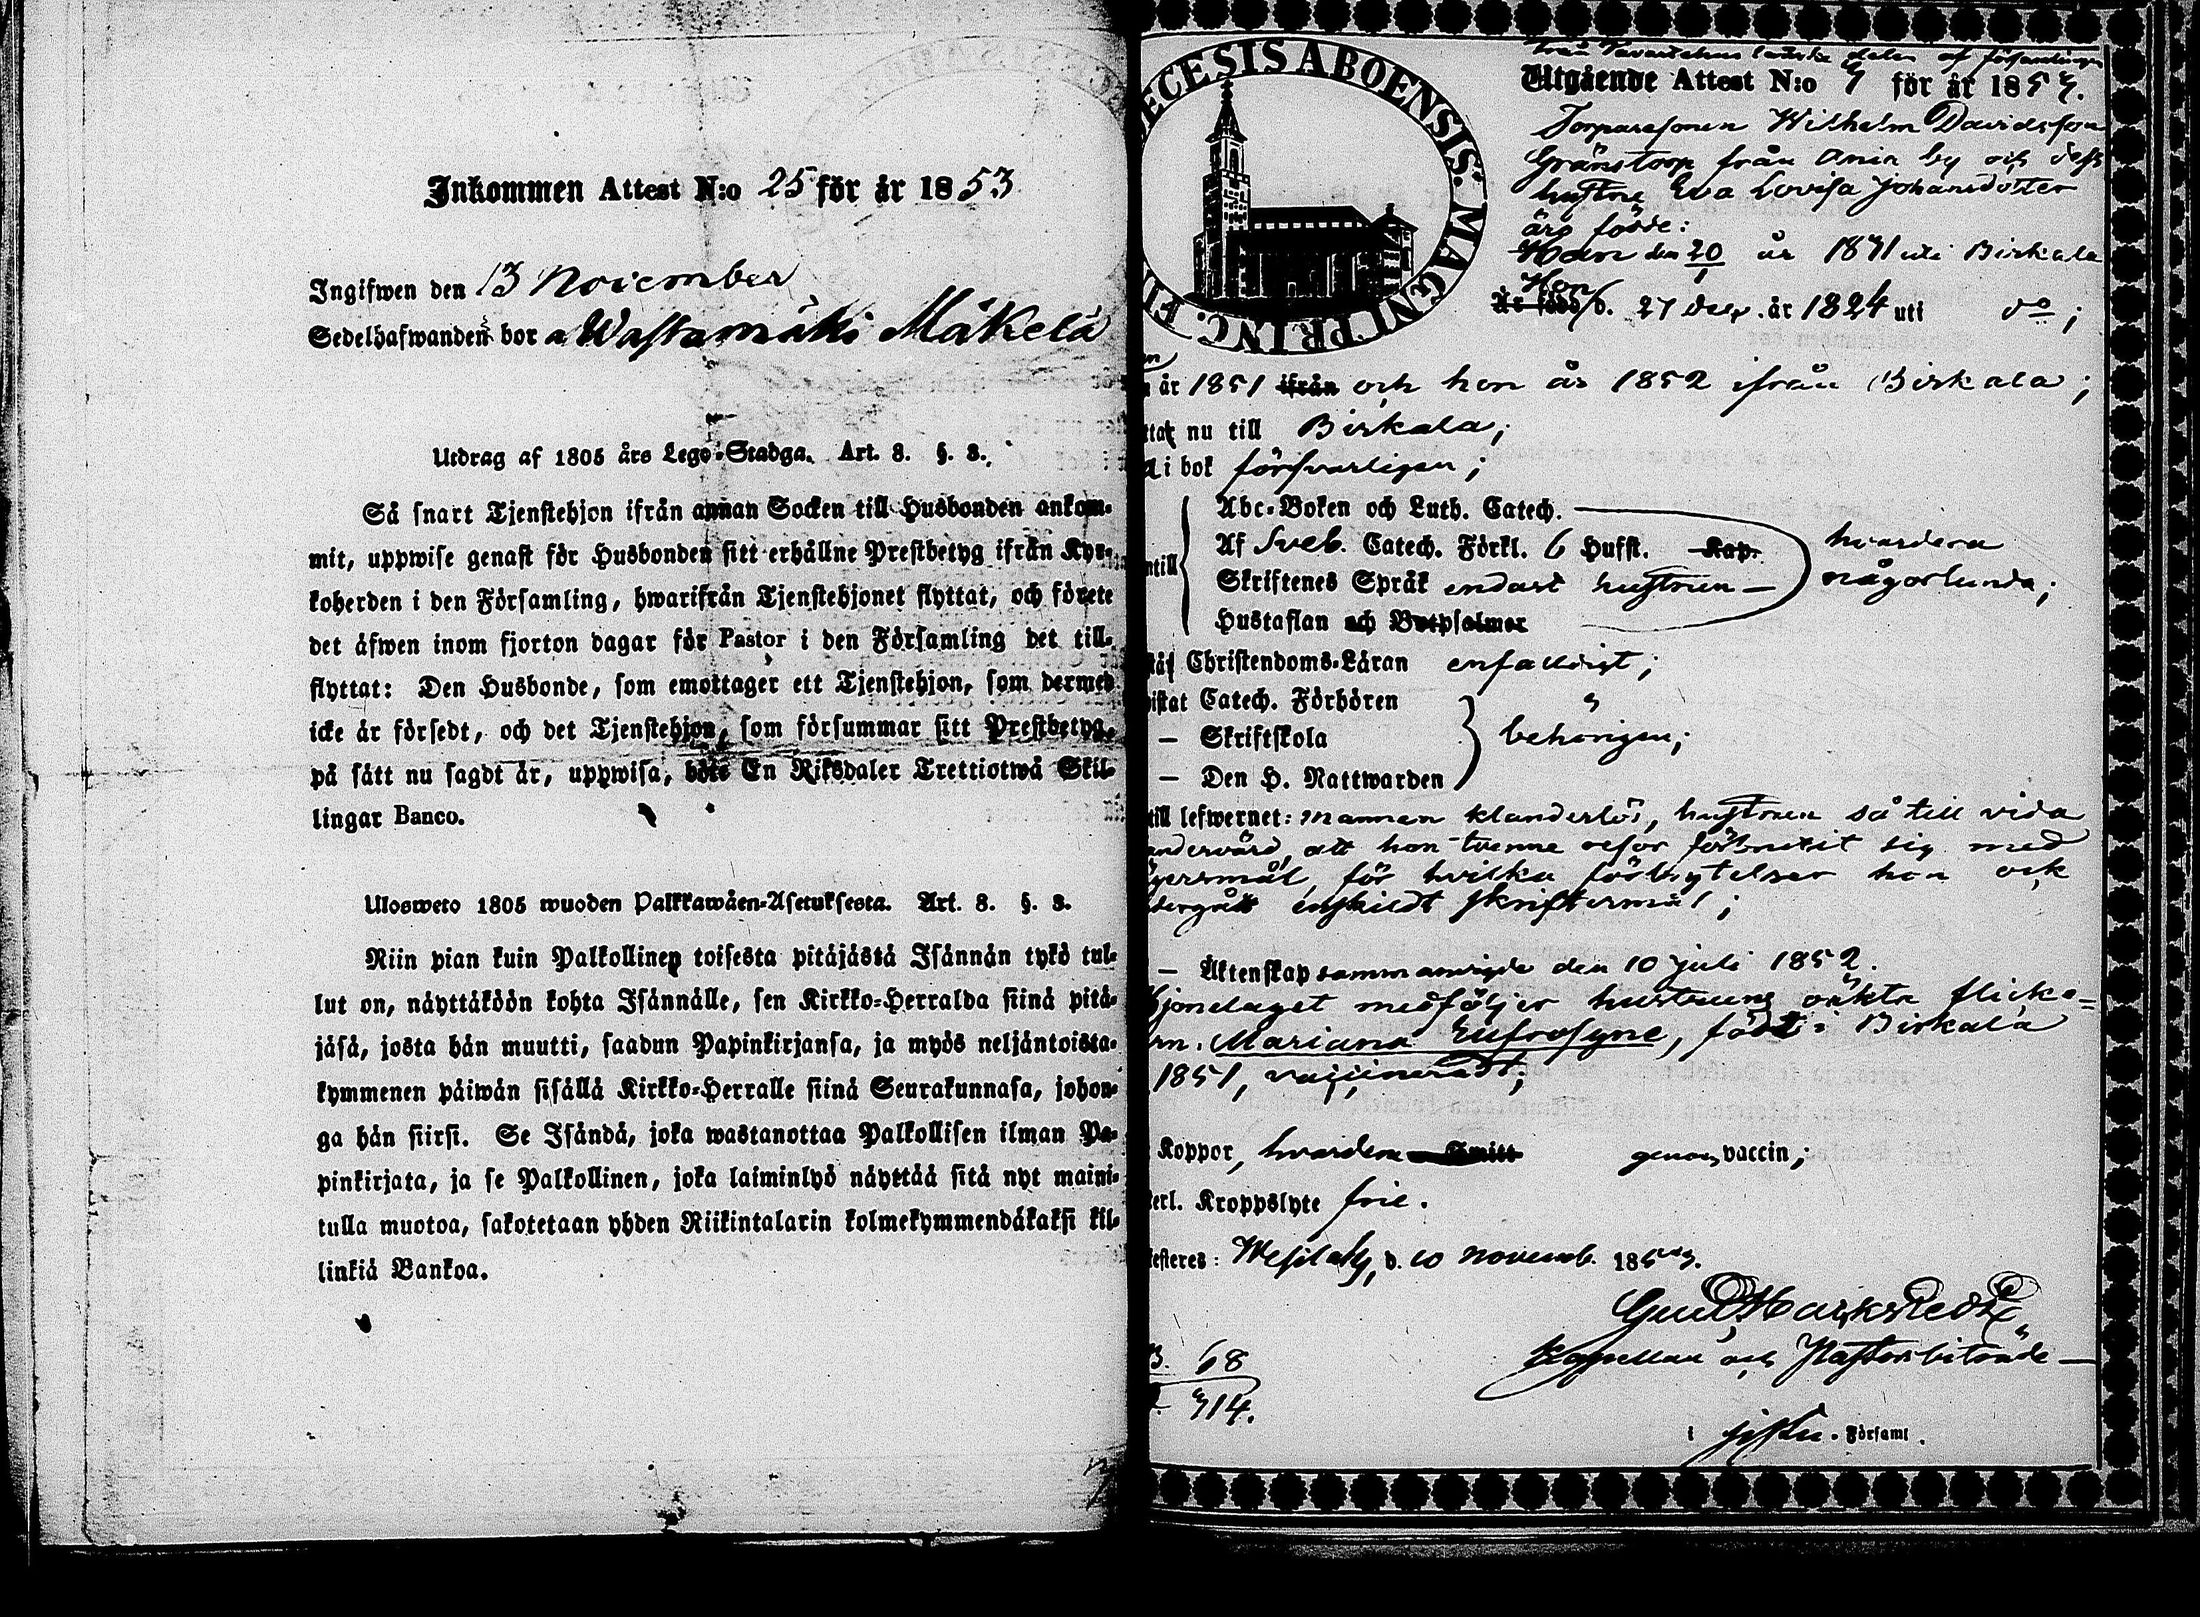 Inkommen Attest N:o 25 för år 1853
Ingifwen den 13 November
Sedelhafwanden bor a Wastamäki Mäkelä
Utdrag af 1805 års Lego-Stadga. Art. 8. §. 8.
Så snart Tjenstehjon ifrån annan Socken till Husbonden ankom-
mit, uppwise genast för Husbonden sitt erhållne Prestbetyg ifrån Kyr-
koherden i den Församling, hwarifrån Tjenstehjonet flyttat, och förete
det äfwen inom fjorton dagar för Pastor i den Församling det till-
flyttat: Den Husbonde, som emottager ett Tjenstehjon, som dermed
icke är försedt, och det Tjenstehjon, som försummar sitt Prestbetyg,
på sätt nu sagdt är, uppwisa, böte En Riksdaler Trettiotwå Skil-
lingar Banco.
Ulosweto 1805 wuoden Palkkawäen-Asetuksesta. Art. 8. §. 8.
Niin pian kuin Palkollinen toisesta pitäjästä Isännän tykö tul-
lut on, näyttäköön kohta Isännälle, sen Kirkko-Herralda siinä pitä-
jäsä, josta hän muutti, saadun Papinkirjansa, ja myös neljäntoista-
kymmenen päiwän sisällä Kirkko-Herralle siinä Seurakunnasa, johon-
ga hän siirsi. Se Isändä, joka wastanottaa Palkollisen ilman Pa-
pinkirjata, ja se Palkollinen, joka laiminlyö näyttää sitä nyt maini-
tulla muotoa, sakotetaan yhden Riikintalarin kolmekymmendäkaksi kil-
linkiä Bankoa.
ECESIS ABOENSIS. MAGNI PRINC. FI
Från Tavastehus länske delen af församlingen
Utgående Attest N:o 9 för år 1853.
Torparesonen Wilhelm Davidsson
Gränstorp från Ania by och dess
hustru Eva Lovisa Johansdotter
äro födde:
Han den 20/1 år 1831 uti Birkala
Hon
Är född d. 27 Dec. år 1824 uti do;
år 1851 ifrån och hon år 1852 ifrån Birkala;
nu till Birkala;
i bok försvarligen;
Abc-Boken och Luth. Catech.
Af Sveb. Catech. Förkl. 6 Hufst. Kap. hvardera
Skriftenes Språk endast hustrun någorlunda;
Hustaflan och Botpsalmer
Christendoms-Läran enfaldigt;
Catech. Förhören
— Skriftskola behörigen;
— Den H. Nattwarden
till lefwernet: mannen klanderlös, hustrun så till vida
att hon tvenne resor försmetit sig med
för hvilka förbrytelser hon ock
enskildt skriftermål;
— Äktenskap sammanvigde den 10 Juli 1852.
Hjonelaget medföljer hustruns oäkta flicke-
rn. Mariana Eufrosyne, född i Birkala
1851, vaccineradt;
Koppor, hvardera Smitt genom vaccin;
Kroppslyte frie.
Wesilaks, d. 10 Novemb. 1853.
Kapellan och Pastorsbiträde
68
314.
i Församl.